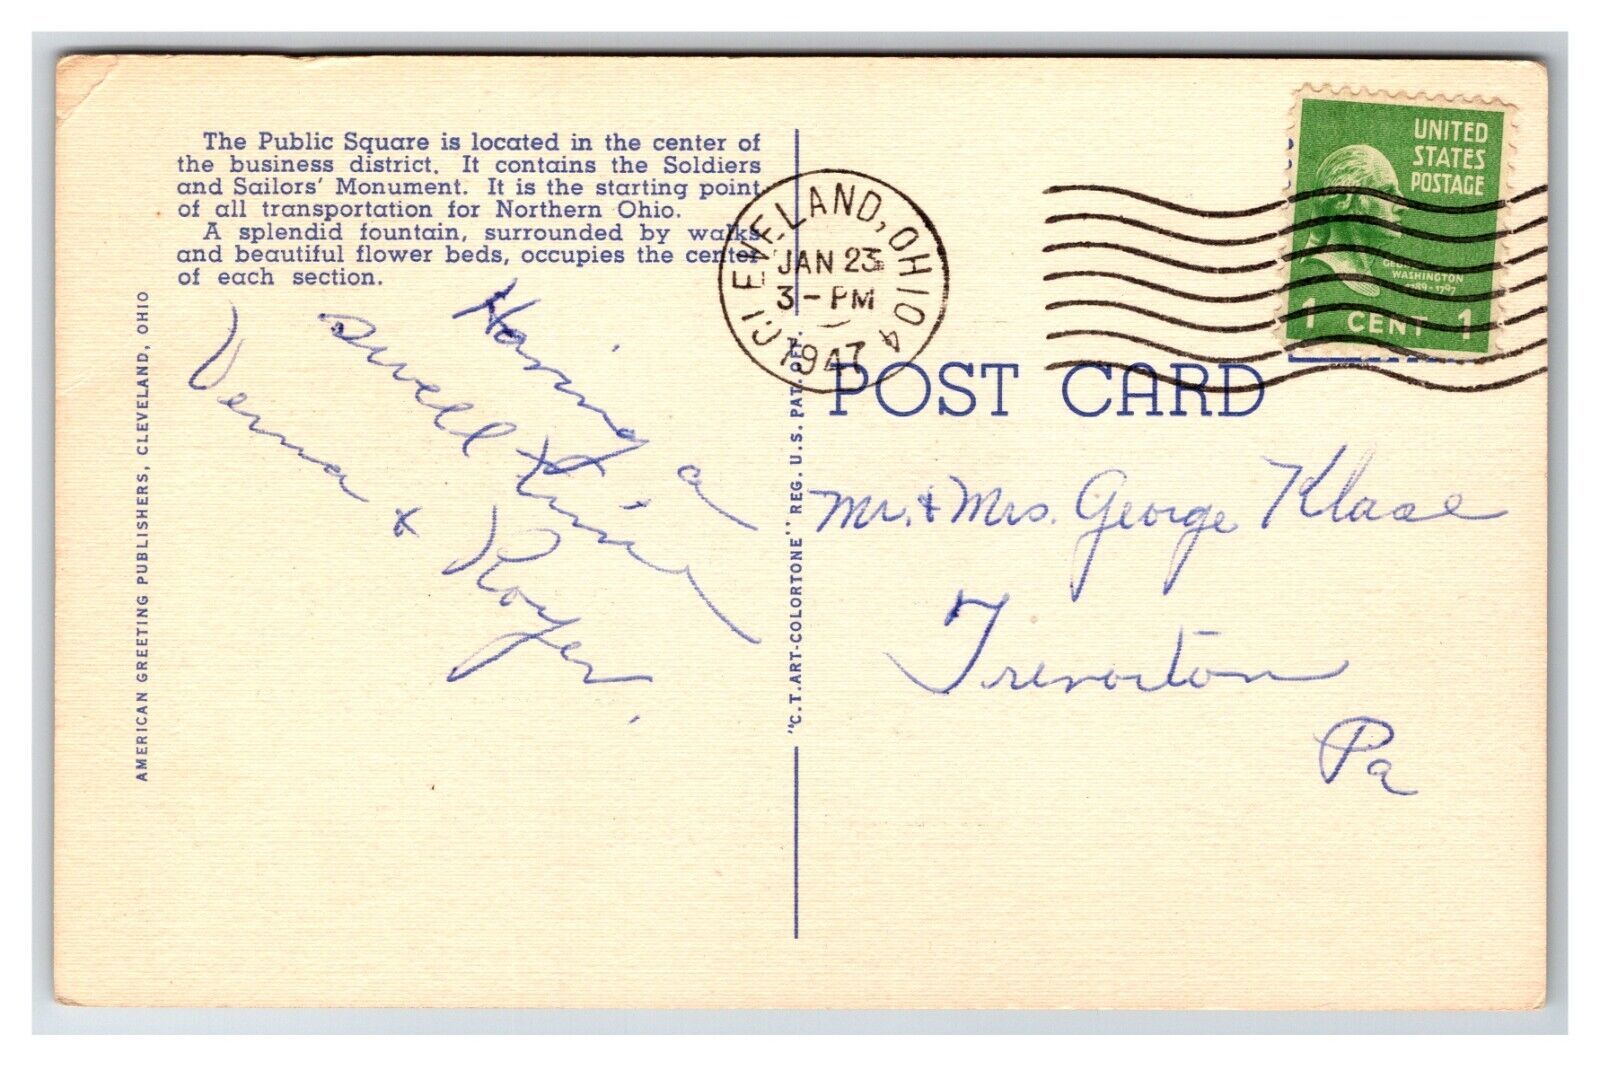 The Public Square is located in the center of
the business district. It contains the Soldiers
and Sailors' Monument. It is the starting point
of all transportation for Northern Ohio.
A splendid fountain, surrounded by walks
and beautiful flower beds, occupies the center
of each section.
Having a
swell time
Verna & Royer.
AMERICAN GREETING PUBLISHERS, CLEVELAND, OHIO
"C.T. ART-COLORTONE" REG. U.S. PAT. OFF.
CLEVELAND, OHIO 4
JAN 23
3-PM
1947
UNITED
STATES
POSTAGE
GEORGE
WASHINGTON
1789-1797
1 CENT 1
POST CARD
Mr. & Mrs. George Klase
Trevorton
Pa